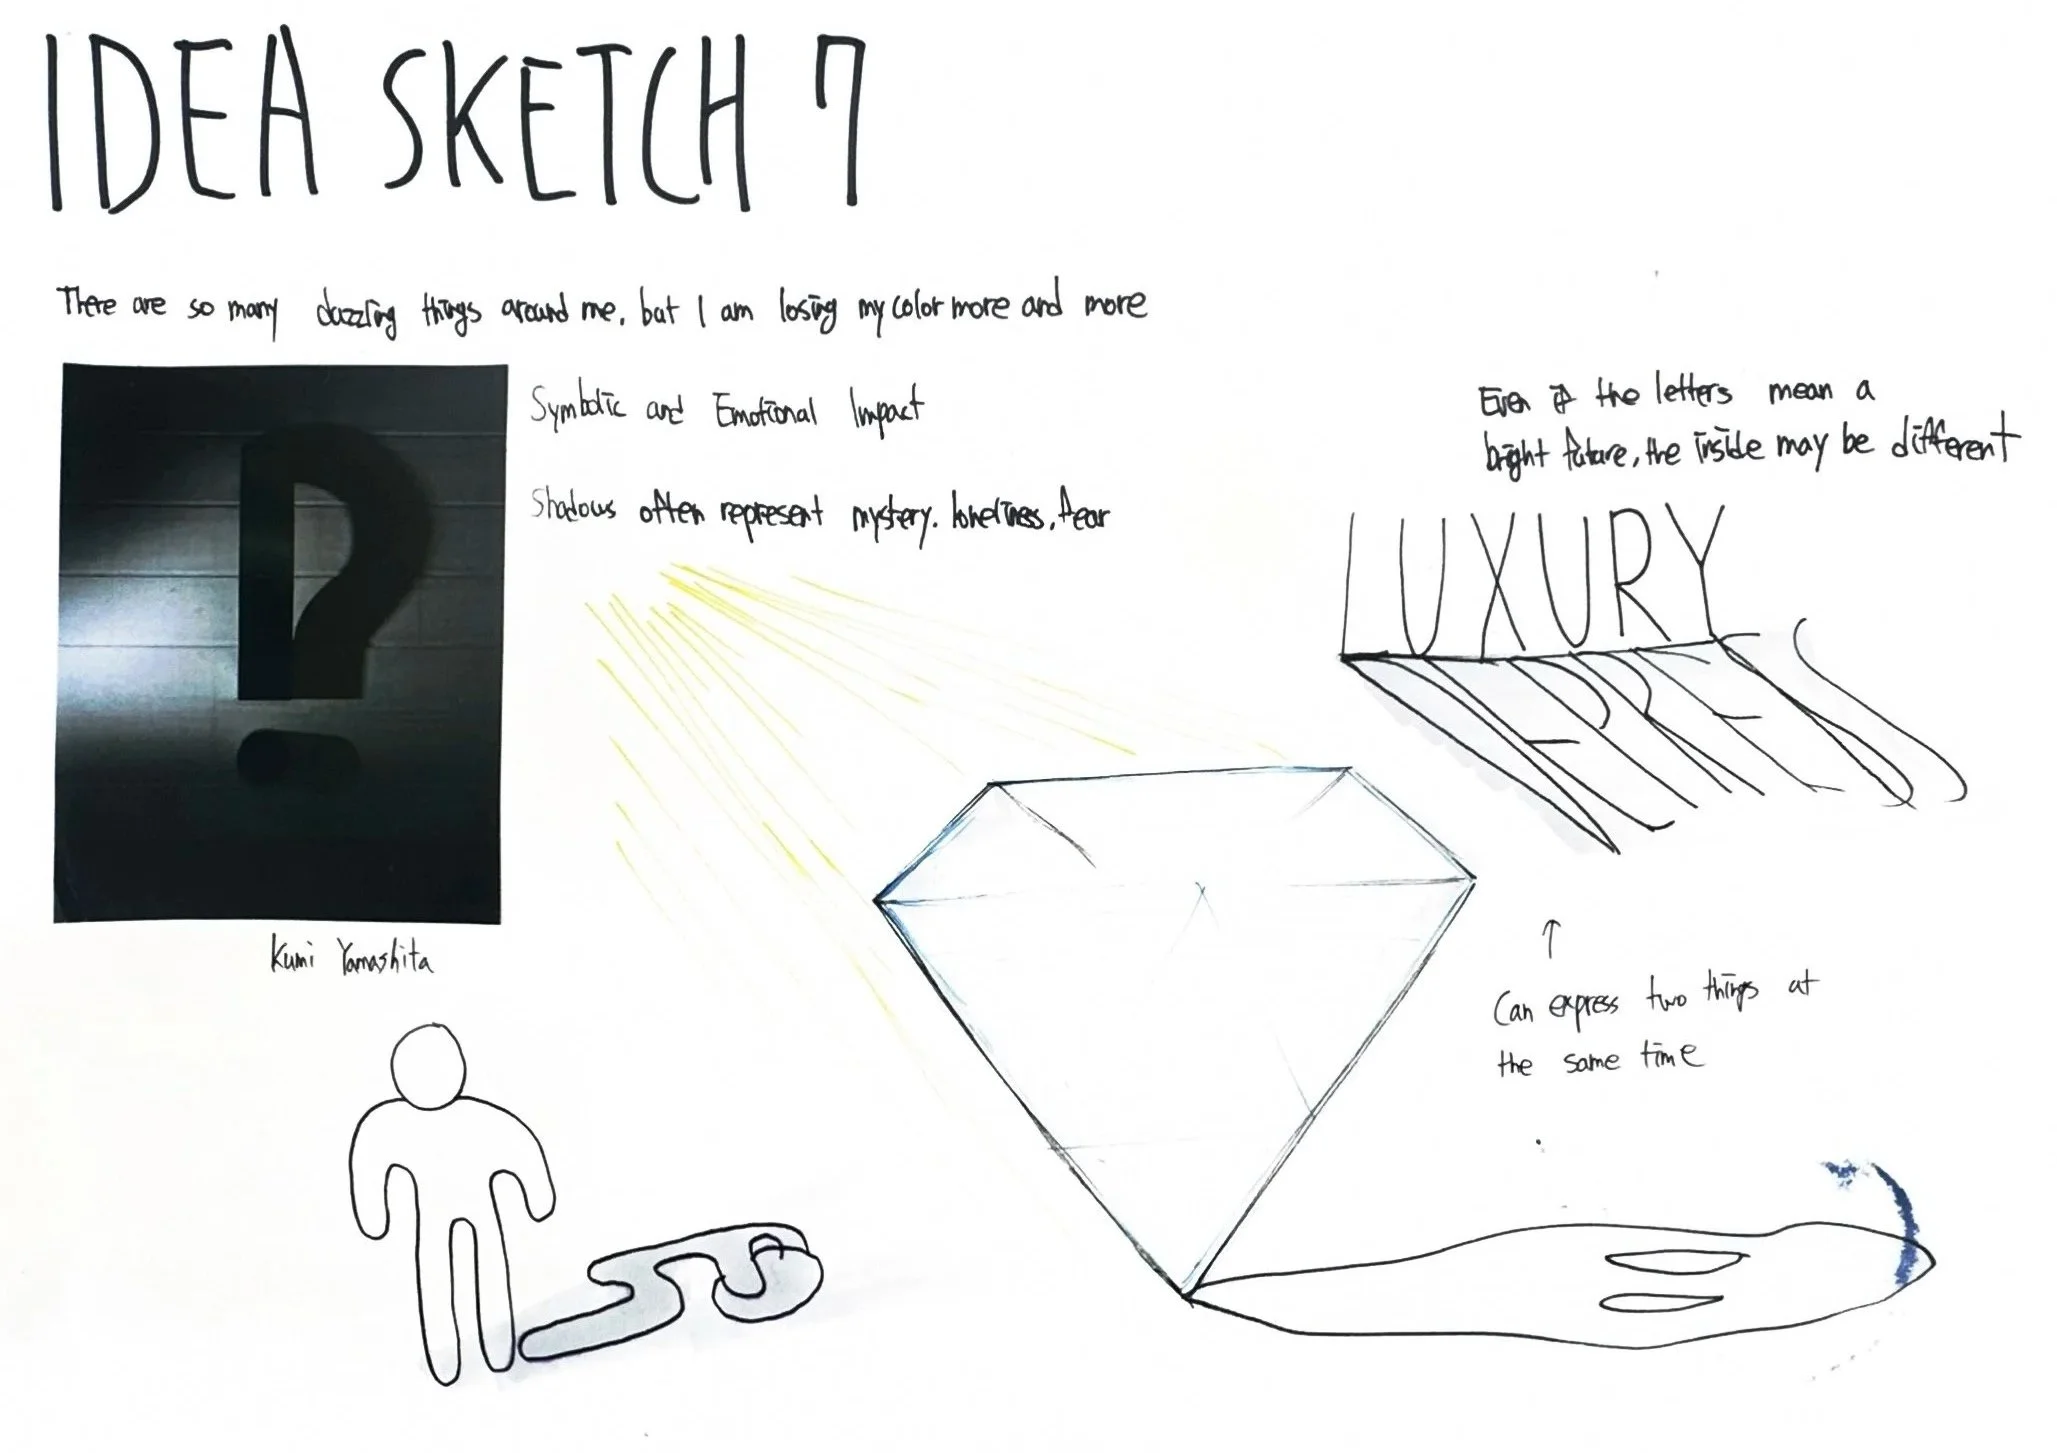 IDEA SKETCH 7
There are so many dazzling things around me, but I am losing my color more and more
Symbolic and Emotional Impact
Shadows often represent mystery. loneliness, fear
Kumi Yamashita
Even if the letters mean a
bright future, the inside may be different
LUXURY
DEPRESS
↑
Can express two things at
the same time